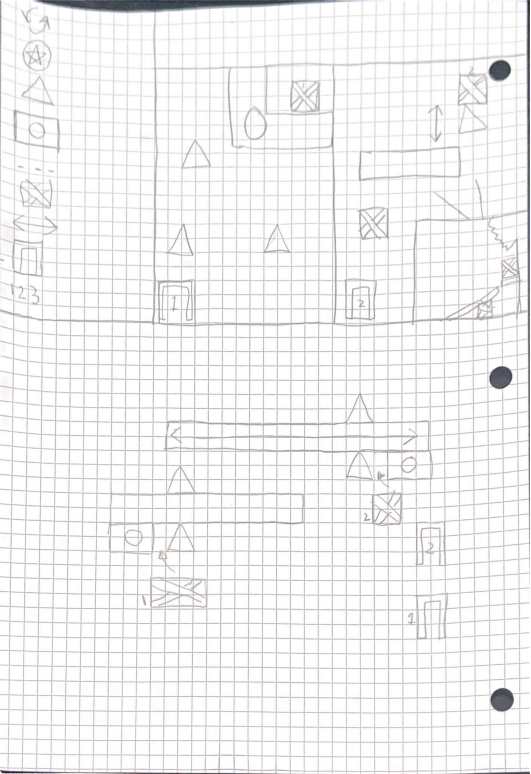 123
2
1
2
2
2
1
1